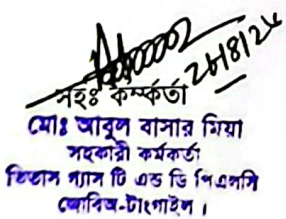 ২৮/৪/২৫
সহঃ কর্ম্মকর্তা
মোঃ আবুল বাসার মিয়া
সহকারী কর্মকর্তা
তিতাস গ্যাস টি এন্ড ডি পিএলসি
জোবিঅ-টাংগাইল।